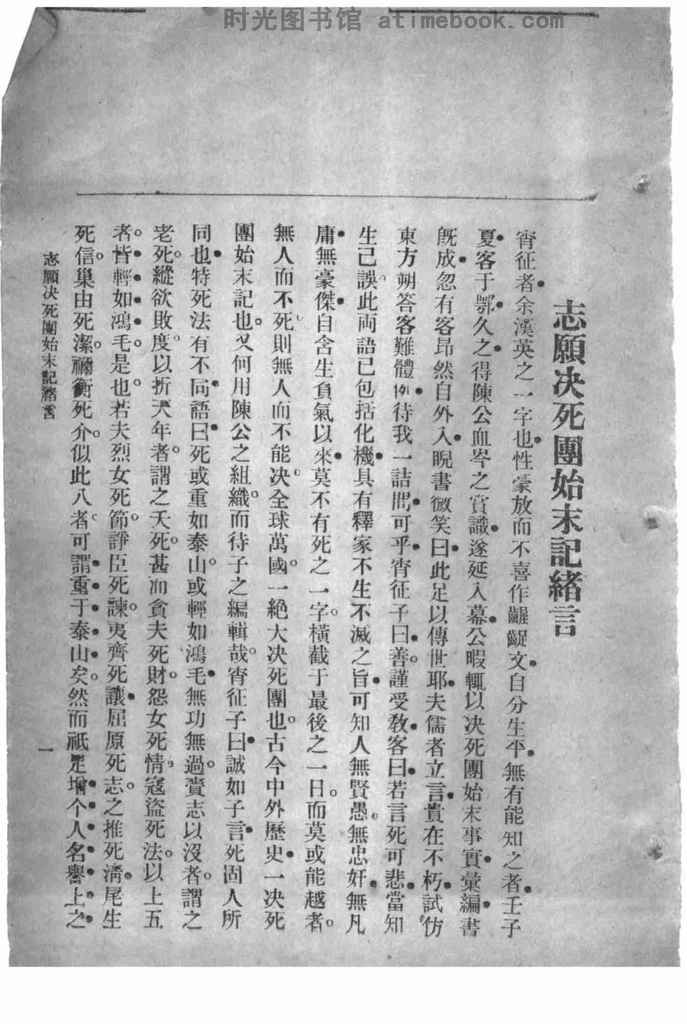 时光图书馆 atimebook.com
志願决死團始末記緒言
宵征者余漢英之一字也性豪放而不喜作齷齪文自分生平無有能知之者壬子
夏客于鄂久之得陳公血岑之賞識遂延入幕公暇輒以决死團始末事實彙編書
既成忽有客昂然自外入睨書微笑曰此足以傳世耶夫儒者立言貴在不朽試仿
東方朔答客難體例待我一詰問可乎宵征子曰善謹受教客曰若言死可悲當知
生已誤此両語已包括化機具有釋家不生不滅之旨可知人無賢愚無忠奸無凡
庸無豪傑自含生負氣以來莫不有死之一字横截于最後之一日而莫或能越者
無人而不死則無人而不能决全球萬國一絶大决死團也古今中外歷史一决死
團始末記也又何用陳公之組織而待子之編輯哉宵征子曰誠如子言死固人所
同也特死法有不同語曰死或重如泰山或輕如鴻毛無功無過賫志以沒者謂之
老死縱欲敗度以折天年者謂之夭死甚而貪夫死財怨女死情寇盜死法以上五
者皆輕如鴻毛是也若夫烈女死節諍臣死諫夷齊死讓屈原死志之推死清尾生
死信巢由死潔禰衡死介似此八者可謂重于泰山矣然而祇足增个人名譽上之
志願决死團始末記緒言
一